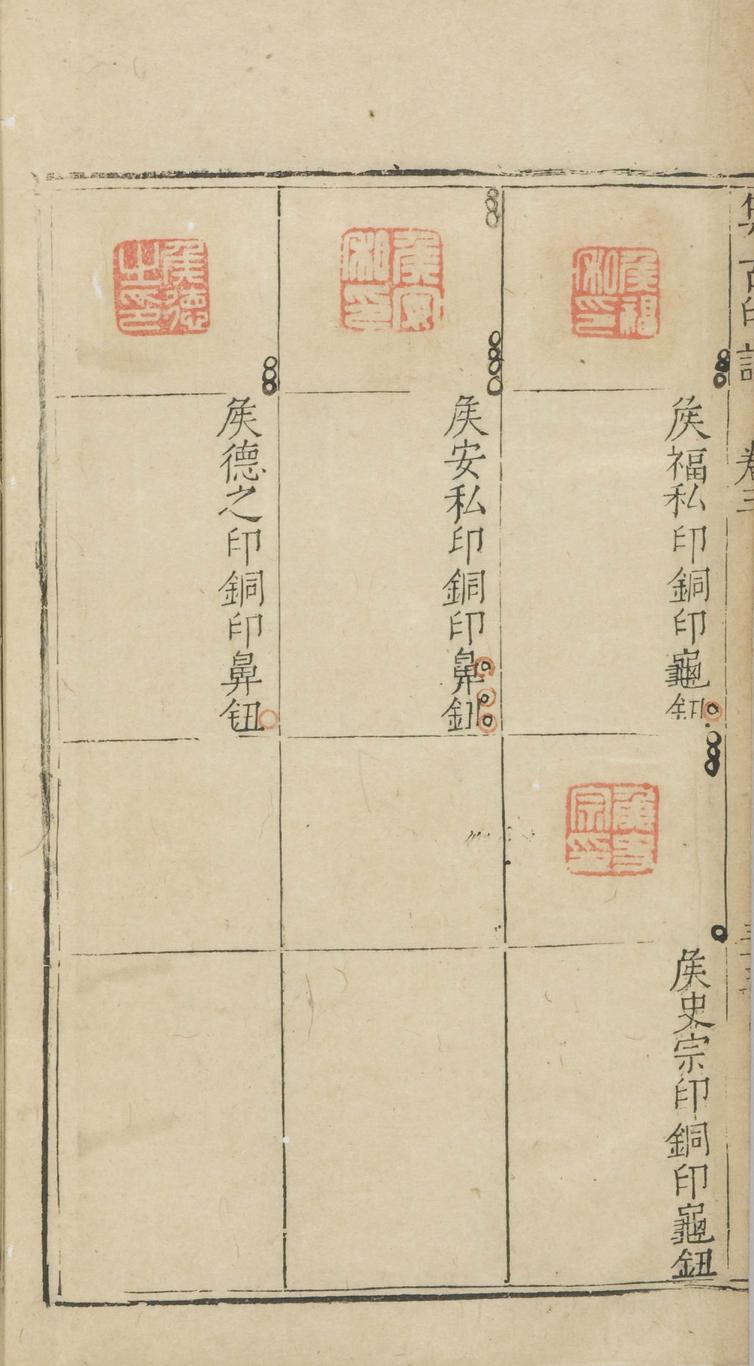 集古印譜 卷三
矦福私印
矦福私印銅印龜鈕
矦史宗印
矦史宗印銅印龜鈕
矦安私印
矦安私印銅印鼻鈕
矦德之印
矦德之印銅印鼻鈕